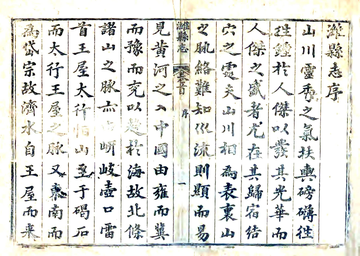 濰縣志序
山川靈秀之氣扶輿磅礴往
往鍾於人傑以發其光華而
人傑之盛者尤在其歸宿結
穴之處夫山川相為表裏山
之脈絡難知以流則顯而易
濰縣志
序
一
見黃河之入中國由雍而冀
而豫而兗以趨於海故北條
諸山之脈亦岍岐壺口雷
首王屋太行恒山至于碣石
而太行王屋之脈又東南而
為岱宗故濟水自王屋而來